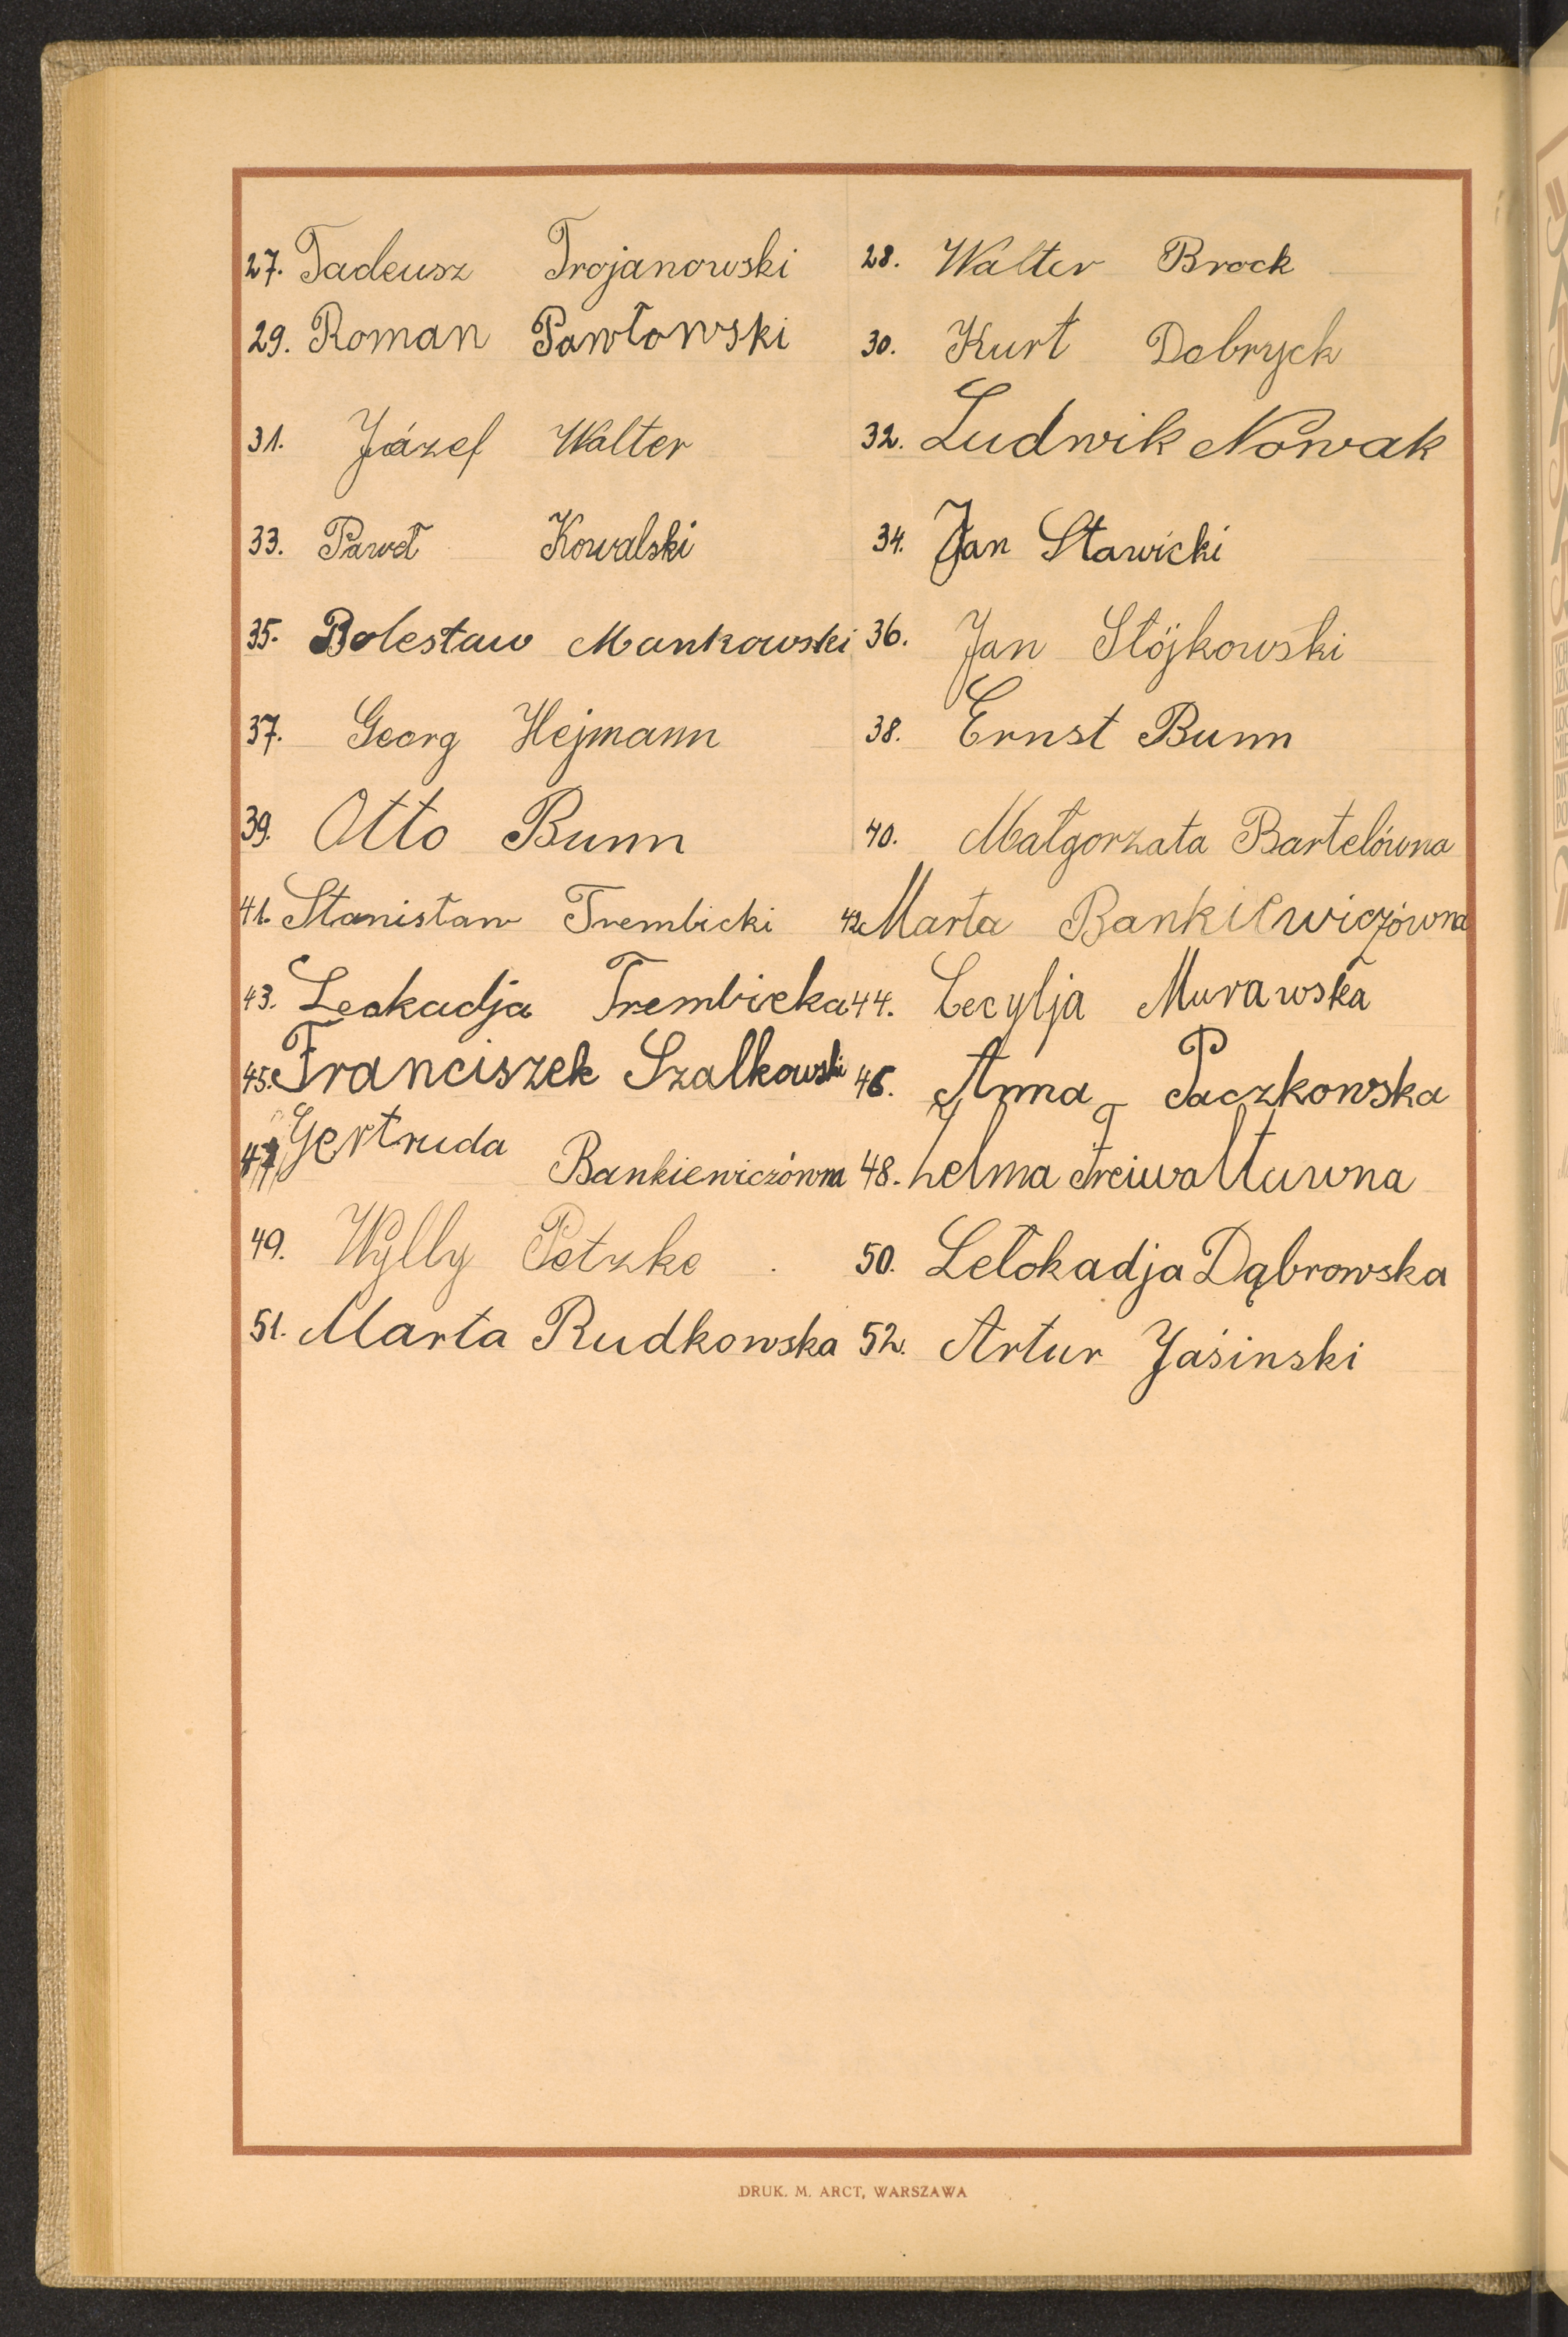 27. Tadeusz Trojanowski 28. Walter Brock
29. Roman Pawłowski 30. Kurt Dobryck
31. Józef Walter 32. Ludwik Nowak
33. Paweł Kowalski 34. Jan Stawicki
35. Bolesław Mankowski 36. Jan Stójkowski
37. Georg Hejmann 38. Ernst Bunn
39. Otto Bunn 40. Małgorzata Bartelówna
41. Stanisław Trembicki 42. Marta Bankiewiczówna
43. Leokadja Trembicka 44. Cecylja Murawska
45. Franciszek Szalkowski 46. Anna Paczkowska
47. Gertruda Bankiewiczówna 48. Helma Freiwaltuwna
49. Wylly Petzke 50. Lełokadja Dąbrowska
51. Marta Rudkowska 52. Artur Jaśinski
DRUK. M. ARCT, WARSZAWA